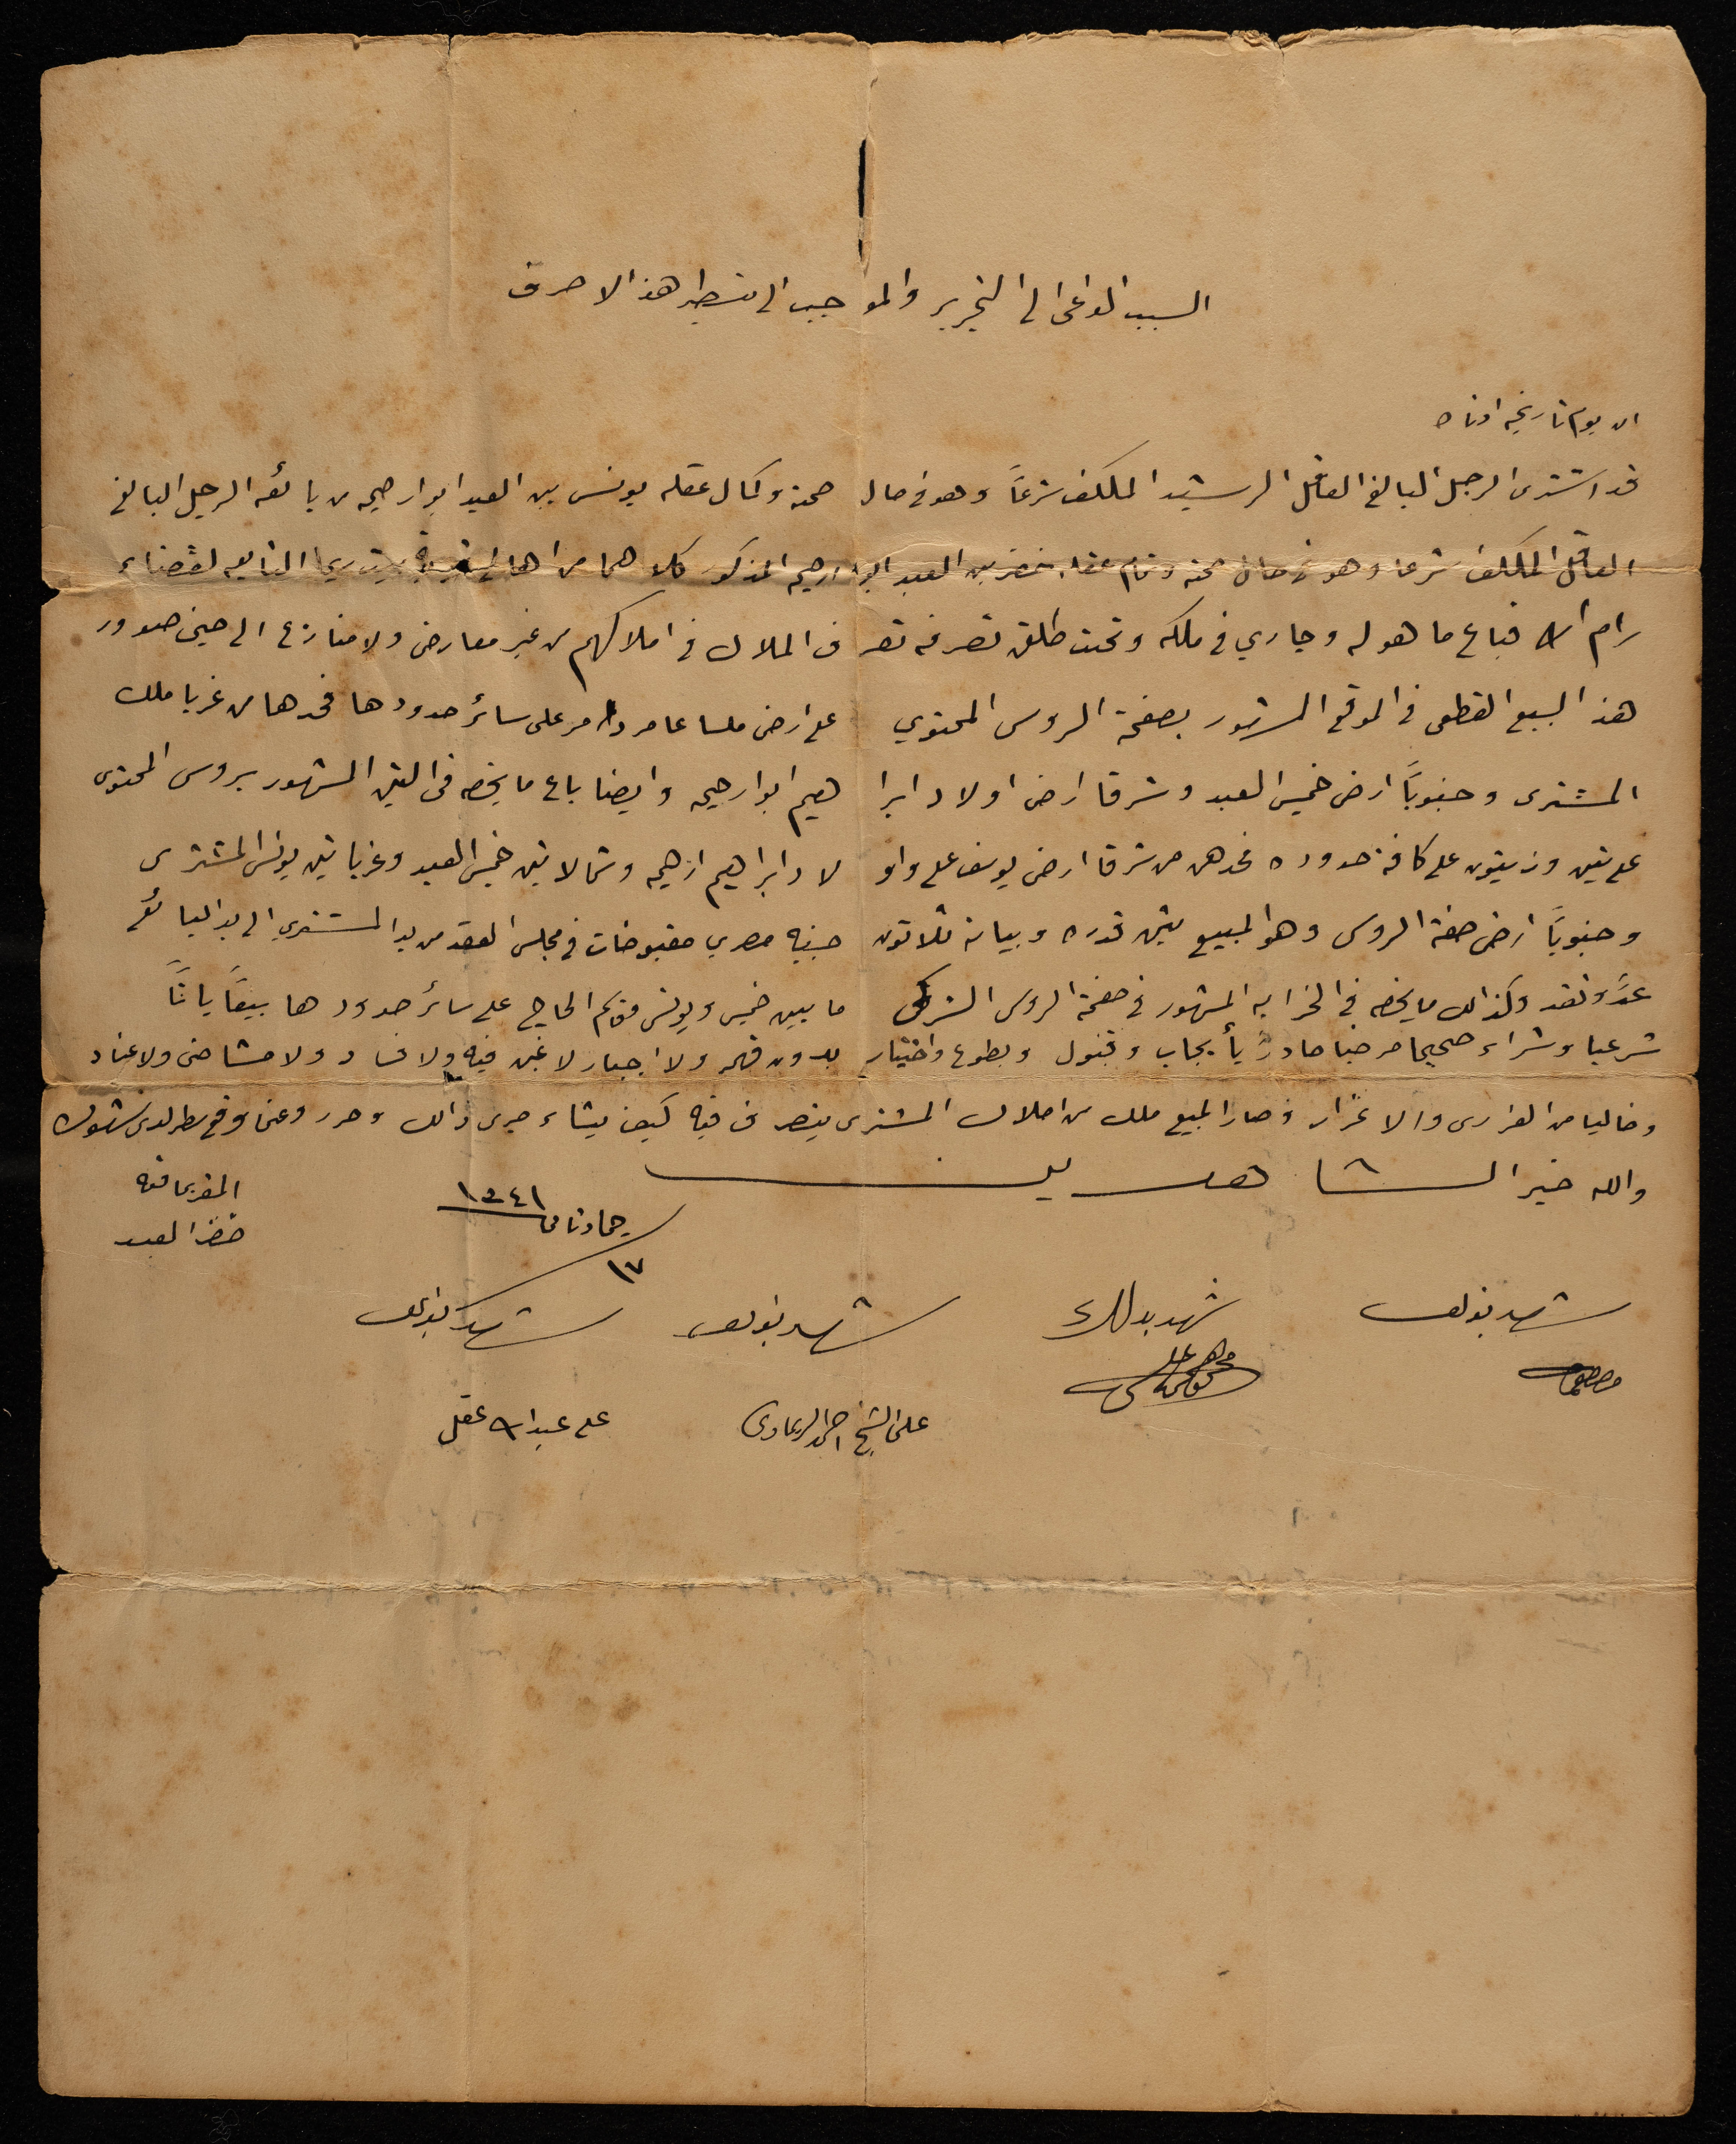 السبب الداعي الى التحرير والموجب الى تسطير هذا الاحرف
ان يوم تاريخه ادناه
قد اشترى الرجل البالغ العاقل الرشيد المكلف شرعاً وهو في حال صحة وكمال عقله يونس بن العبد ابو ارحيمه من بائعه الرجل البالغ
العاقل المكلف شرعا وهو في حال صحته وتمام عقله خضر بن العبد ابو ارحيمه المذكور كلاهما من اهالي قرية بيت ريما التابعه لقضاء
رام الله فباع ما هو له وجاري في ملكه وتحت طلق تصرفه تصرف الملاك في املاكهم من غير معارض ولا منازع الى حين صدور
هذا البيع القطعي في الموقع المشهور بصفحة الروس المحتوي على ارض ملسا عامر دامر على سائر حدودها فحدها من غربا ملك
المشترى وجنوباً ارض خميس العبد وشرقا ارض اولاد ابراهيم ابو ارحيمه وايضا باع ما يخصه في التين المشهور بروس المحتوى
على تين وزيتون على كافة حدوده فحدهن من شرقا ارض يوسف علي واولاد ابراهيم ارحيمه وشمالا تين خميس العبد وغربا تين يونس المشترى
وجنوباً ارض صفحة الروس وهو المبيع بثمن قدره وبيانه ثلاثون جنيه مصري مقبوضات في مجلس العقد من يد المشتري الى يد البائع
عدً ونقد وكذالك ما يخصه في الخرابه المشهور في صفحة الروس الشرقي ما بين خميس ويونس الحاج على سائر حدودها بيعاً باتاً
شرعيا وشراء صحيحا مرحبا صادرً بأيجاب وقبول وبطوع واختيار بدون قهر ولا اجبار لا غبن فيه ولا فساد ولا ولا عناد
وخاليا من الغررى والاغرار وصار المبيع ملك من املاك المشترى يتصرف فيه كيف يشاء جرى ذالك وحرر وعن ما وقع سطر لدى شهوده
والله خير الشاهدين
المقر بما فيه
خضر العبد
جماد ثاني ١٣٤١
١٧
شهد بذلك شهد بذلك شهد بذلك شهد بذلك
مصطفى
علي الشيخ احمد الريماوي علي عبد الله عقل